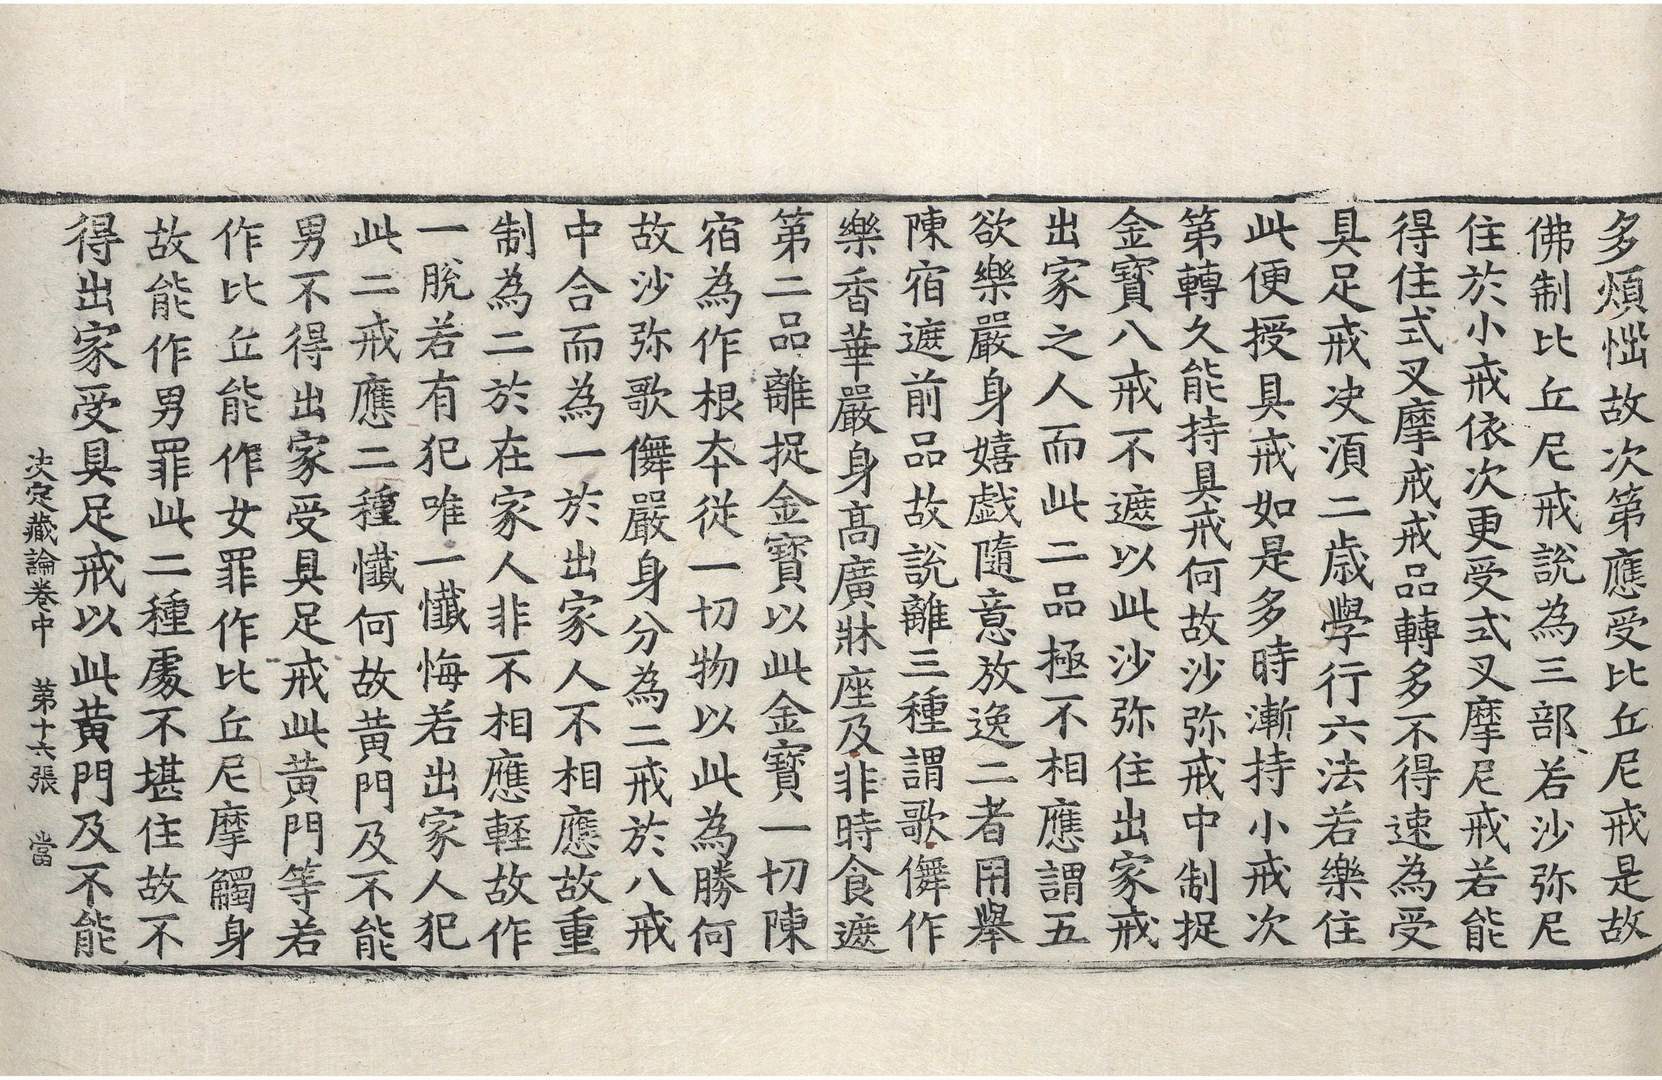 多煩惱故次第應受比丘尼戒是故
佛制比丘尼戒說為三部若沙弥尼
住於小戒依次更受式叉摩尼戒若能
得住式叉摩戒戒品轉多不得速為受
具足戒决湏二歳學行六法若樂住
此便授具戒如是多時漸持小戒次
第轉久能持具戒何故沙弥戒中制捉
金寶八戒不遮以此沙弥住出家戒
出家之人而此二品極不相應謂五
欲樂嚴身嬉戯隨意放逸二者用舉
陳宿遮前品故說離三種謂歌儛作
樂香華嚴身髙廣牀座及非時食遮
第二品離捉金寶以此金寶一切陳
宿為作根夲從一切物以此為勝何
故沙弥歌儛嚴身分為二戒於八戒
中合而為一於出家人不相應故重
制為二於在家人非不相應輕故作
一脫若有犯唯一懺悔若出家人犯
此二戒應二種懺何故黄門及不能
男不得出家受具足戒此黄門等若
作比丘能作女罪作比丘尼摩觸身
故能作男罪此二種處不堪住故不
得出家受具足戒以此黄門及不能
决定藏論卷中　第十六張　當